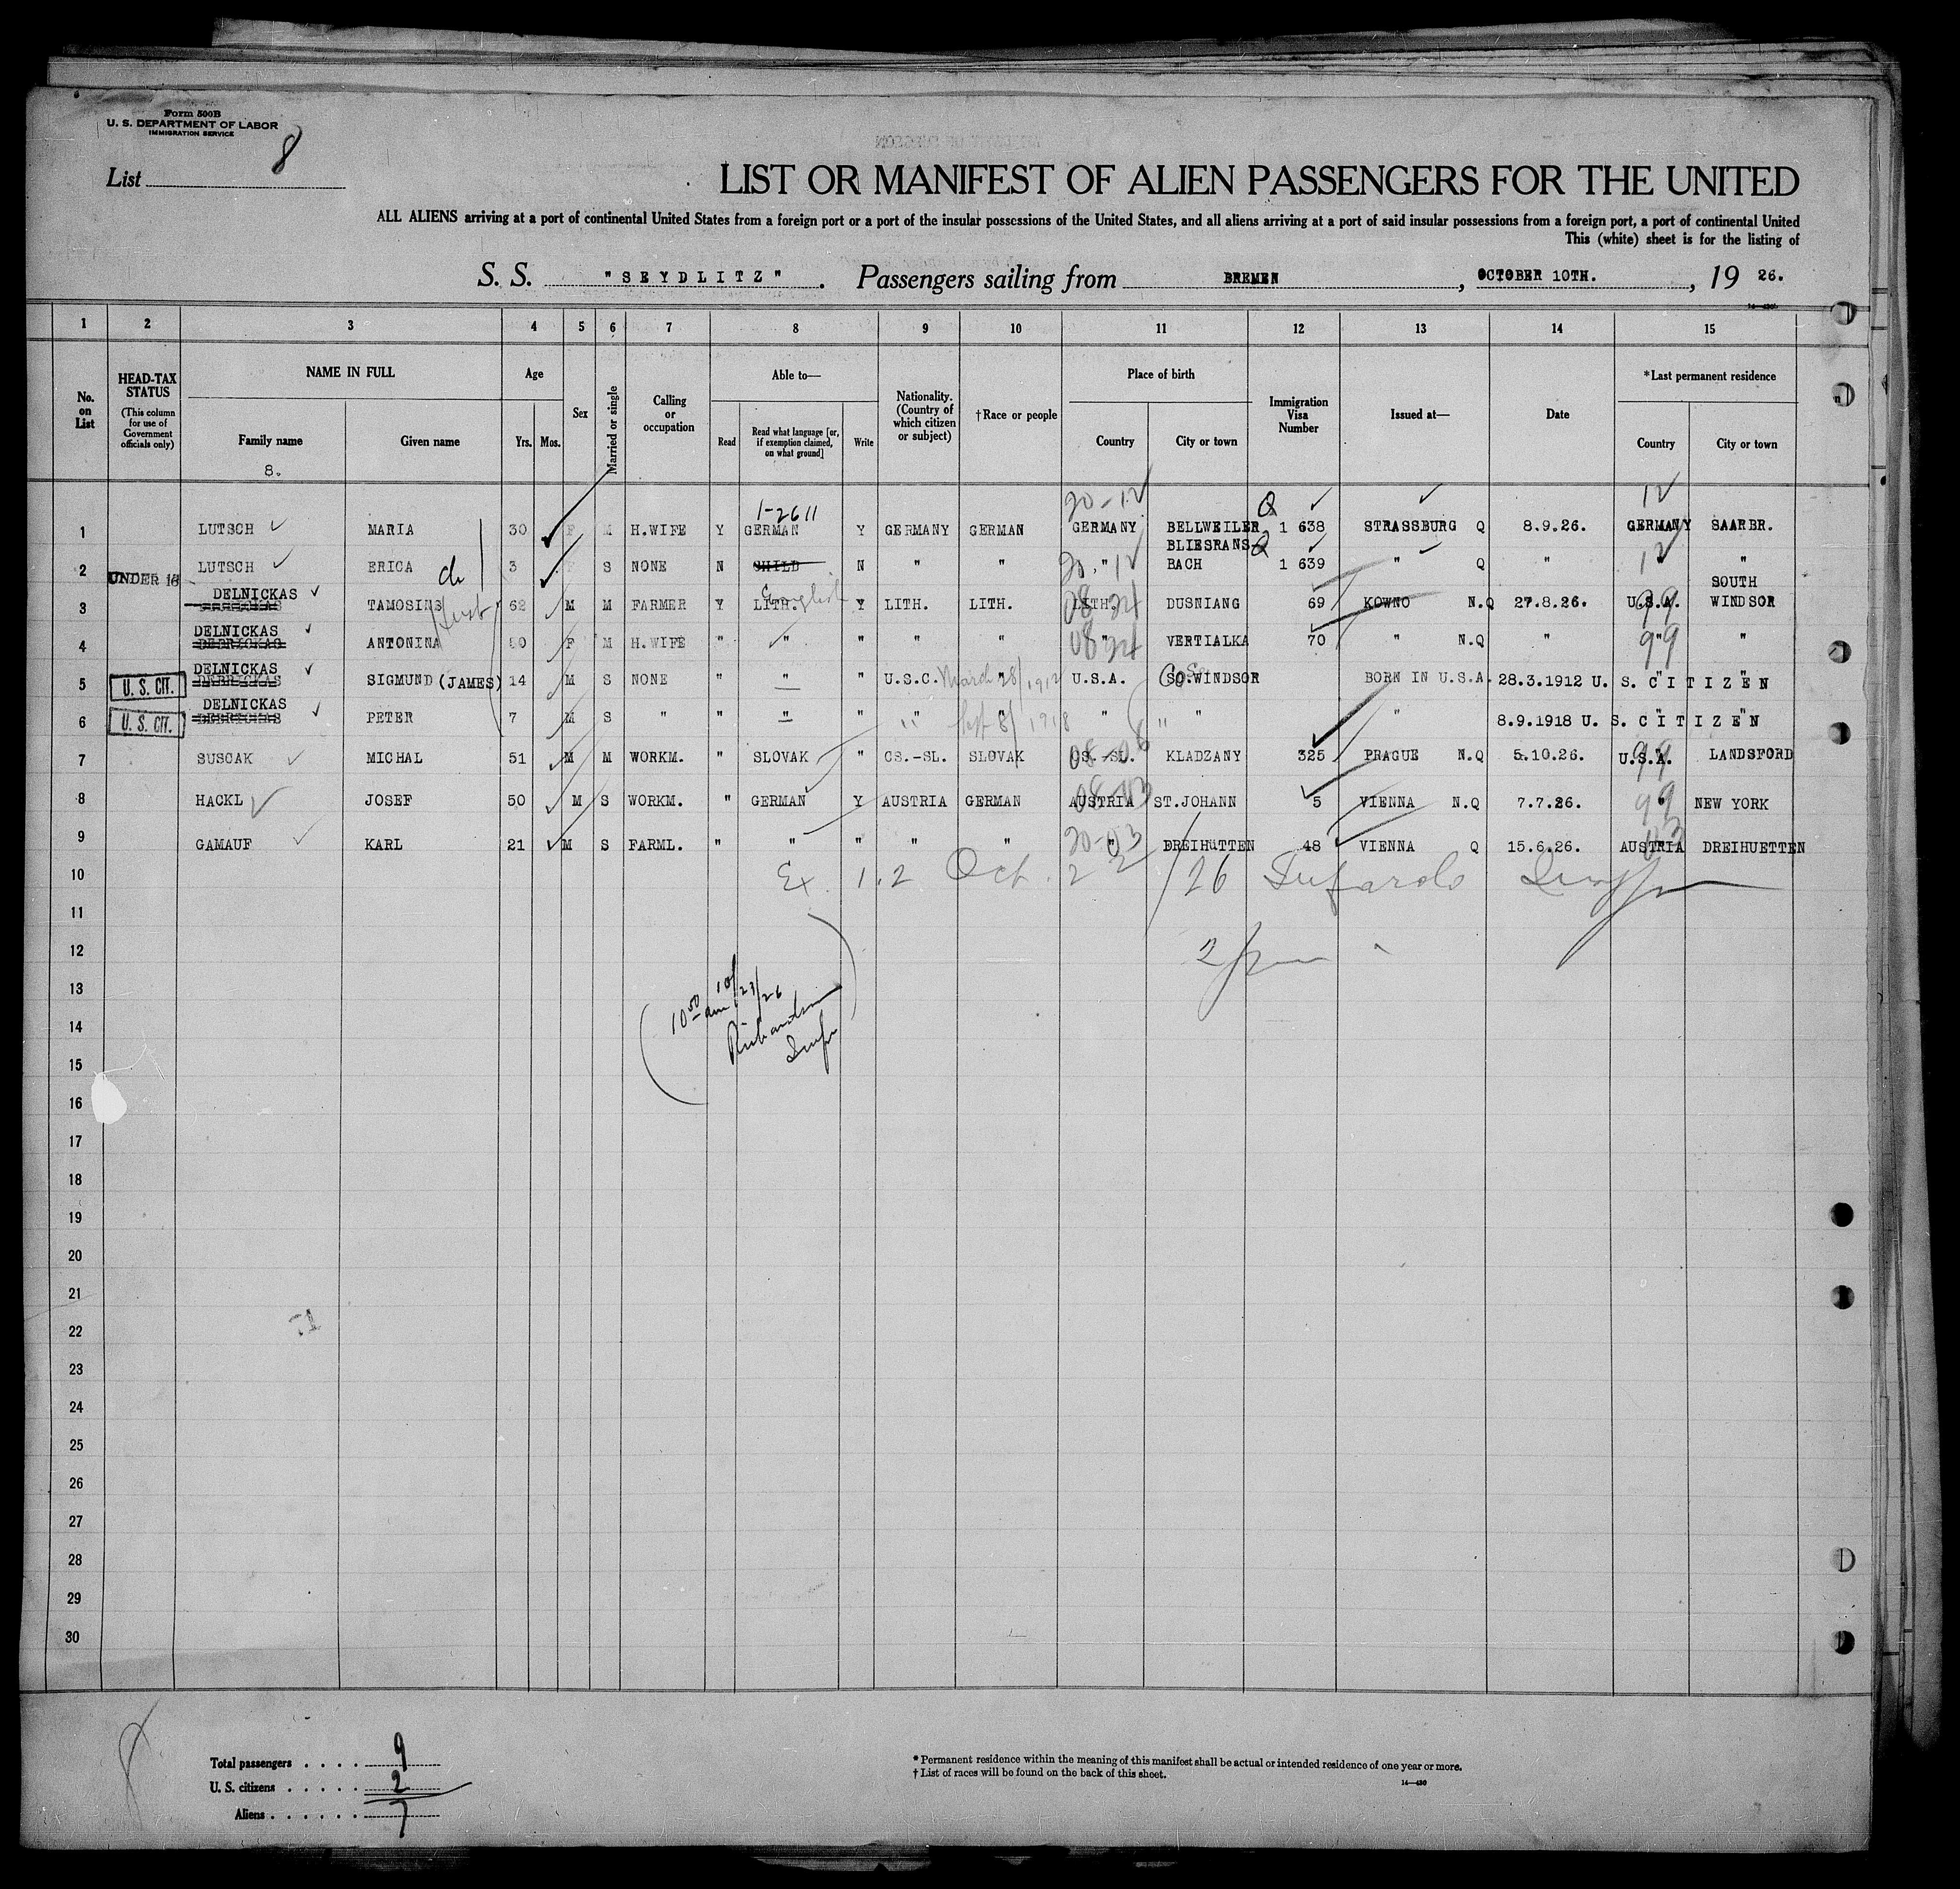 Form 500B
U. S. DEPARTMENT OF LABOR
IMMIGRATION SERVICE
8
List
LIST OR MANIFEST OF ALIEN PASSENGERS FOR THE UNITED
ALL ALIENS arriving at a port of continental United States from a foreign port or a port of the insular possessions of the United States, and all aliens arriving at a port of said insular possessions from a foreign port, a port of continental United
This (white) sheet is for the listing of
S. S. "SEYDLITZ". Passengers sailing from BREMEN, OCTOBER 10TH., 19 26.
1 2 3 4 5 6 7 8 9 10 11 12 13 14 15
No. on List
HEAD-TAX STATUS
(This column for use of Government officials only)
NAME IN FULL
Family name
Given name
8.
Age
Yrs. Mos.
Sex
Married or single
Calling or occupation
Able to—
Read
Read what language [or, if exemption claimed, on what ground]
Write
Nationality. (Country of which citizen or subject)
†Race or people
Place of birth
Country
City or town
Immigration Visa Number
Issued at—
Date
*Last permanent residence
Country
City or town
20-12 Q 12
1-2611
1 LUTSCH MARIA 30 F M H.WIFE Y GERMAN Y GERMANY GERMAN GERMANY BELLWEILER 1 638 STRASSBURG Q 8.9.26. GERMANY SAARBR.
BLIESRANS- Q
2 LUTSCH ERICA ch 3 F S NONE N CHILD N " " 20 " 12 BACH 1 639 " Q " 12 "
UNDER 16
DELNICKAS English SOUTH
3 TAMOSINS 62 M M FARMER Y LITH. Y LITH. LITH. LITH. 08 24 DUSNIANG 69 KOWNO N.Q 27.8.26. U.S.A. 99 WINDSOR
DELNICKAS
4 DEBRICKAS ANTONINA 50 F M H.WIFE " " " " " " 08 24 VERTIALKA 70 " N.Q " " 99 "
DELNICKAS
5 U. S. CIT. DEBRICKAS SIGMUND (JAMES) 14 M S NONE " " " U.S.C. March 28/1912 " U.S.A. SO.WINDSOR BORN IN U.S.A. 28.3.1912 U. S. CITIZEN
DELNICKAS
6 U. S. CIT. DEBRICKAS PETER 7 M S " " " " " Sept 8/1918 " " " " 8.9.1918 U. S. CITIZEN
7 SUSCAK MICHAL 51 M M WORKM. " SLOVAK " CS.-SL. SLOVAK CS.-SL. 08-08 KLADZANY 325 PRAGUE N.Q 5.10.26. U.S.A. 99 LANDSFORD
8 HACKL JOSEF 50 M S WORKM. " GERMAN Y AUSTRIA GERMAN AUSTRIA 08-03 ST.JOHANN 5 VIENNA N.Q 7.7.26. " 99 NEW YORK
9 GAMAUF KARL 21 M S FARML. " " " " " " 20-03 DREIHüTTEN 48 VIENNA Q 15.6.26. AUSTRIA 03 DREIHUETTEN
10 Ex. 1.2 Oct. 22/26
11
12
13
14
15
16
17
18
19
20
21
22
23
24
25
26
27
28
29
30
10 00 am 10/23/26
Richardson
Insp
Total passengers . . . . 9
U. S. citizens . . . . . 2
Aliens . . . . . . 7
* Permanent residence within the meaning of this manifest shall be actual or intended residence of one year or more.
† List of races will be found on the back of this sheet.
14—430